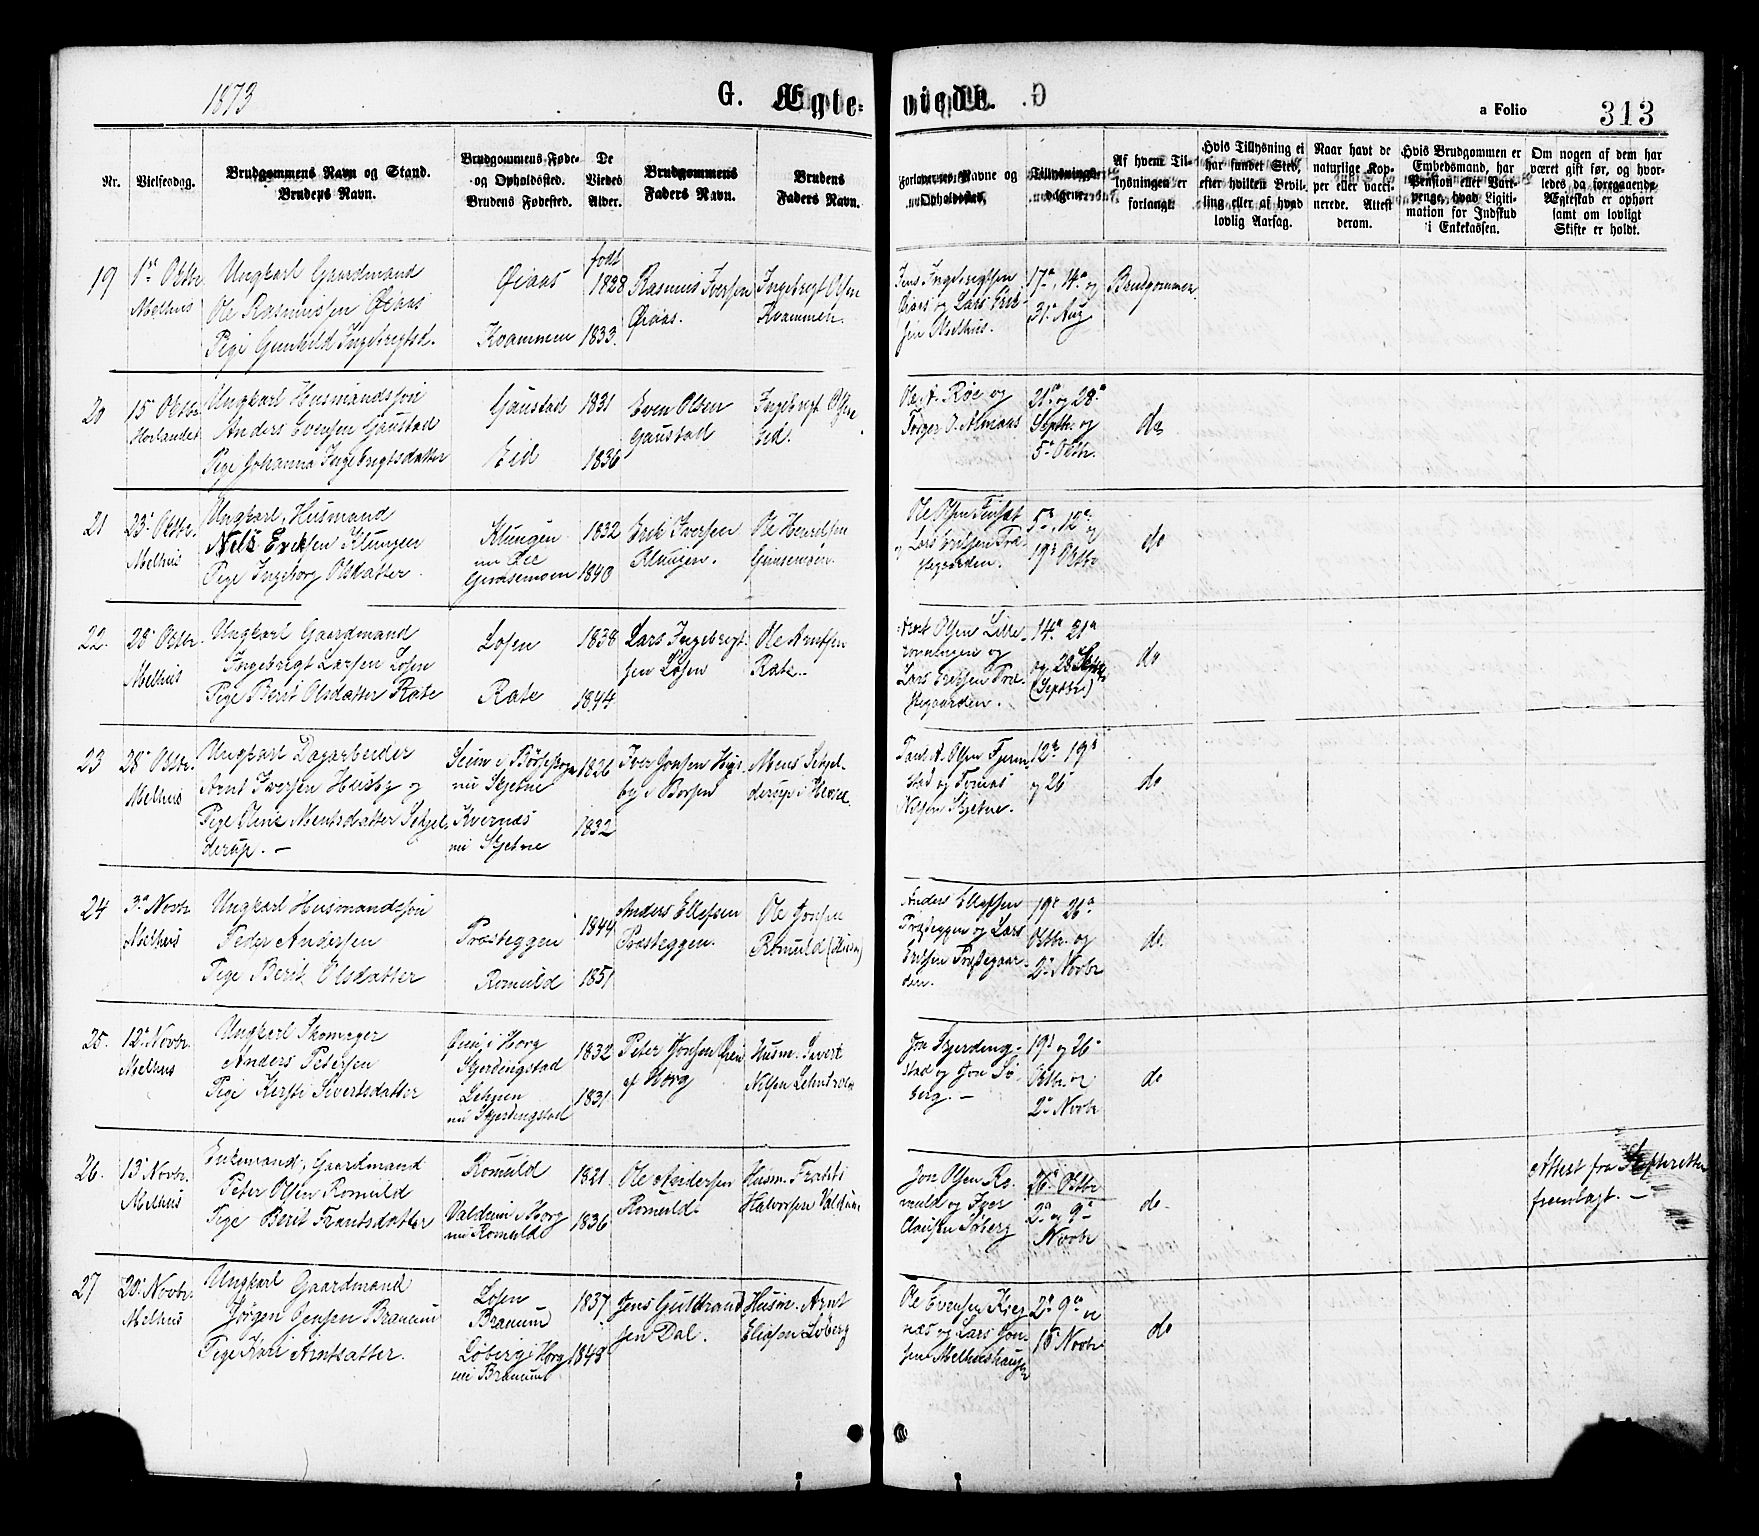 1873
G. Ægteviede.
a Folio 313
Nr.
Vielsesdag.
Brudgommens Navn og Stand.
Brudens Navn.
Brudgommens Føde-
og Opholdssted.
Brudens Fødested.
De
Viedes
Alder.
Brudgommens
Faders Navn.
Brudens
Faders Navn.
Forlovernes Navne og
Opholdssted.
Tillysnings-
dagene.
Af hvem Til-
lysningen er
forlangt.
Hvis Tillysning ei
har fundet Sted,
efter hvilken Bevil-
ling eller af hvad
lovlig Aarsag.
Naar havt de
naturlige Kop-
per eller vacci-
nerede. Attest
derom.
Hvis Brudgommen er
Embedsmand, har
Pension eller Vart-
penge, hvad Ligiti-
mation for Indskud
i Enkekassen.
Om nogen af dem har
været gift før, og hvor-
ledes da foregaaende
Ægteskab er ophørt
samt om lovligt
Skifte er holdt.
19
1st Octbr.
Melhus
Ungkarl Gaardmand
Ole Rasmussen Øiaas
Pige Gunhild Ingebrigtsd.
Øiaas
Kvammen
født
1828
1833.
Rasmus Iversen
Øiaas.
Ingebrigt Olsen
Kvammen.
Jens Ingebrigtsen
Øiaas og Lars Erik-
sen Melhus.
17de, 14de og
31 Aug
Brudgommen
20
15 Octbr.
Horlandet
Ungkarl Husmandssøn
Anders Evensen Gaustad
Pige Johanna Ingebrigtsdatter
Gaustad
Eid
1831
1836
Even Olsen
Gaustad
Ingebrigt Olsen
Eid.
Ole A. Røe og
21de og 28de
Septbr. og
5 Octbr.
do
21
23 Octbr.
Melhus
Ungkarl, Husmand
Nils Eriksen Klungen
Pige Ingeborg Olsdatter.
Klungen
Gimsemoen
1832
1840
Erik Iversen
Klungen.
Ole Henriksen
Gimsemoen.
Lars Eriksen Præ-
stegaarden.
5te, 12te og
19de Octbr
do
22.
28 Octbr.
Melhus
Ungkarl Gaardmand
Ingebrigt Larsen Losen
Pige Berit Olsdatter Rate
Losen
Rate
1838
1844
Lars Ingebrigt-
sen Losen
Ole Arntsen
Rate.
Lars Eriksen Præ-
stegaarden.
14de 21de
og 28
(Septbr)
do
23
28 Octbr.
Melhus
Ungkarl Dagarbeider
Arnt Iversen Husby og
Pige Oline Mentsdatter Sekjel-
derup. —
nu Skjetne
Kvernæs
nu Skjetne
1826
1832
Iver Jonsen Hus-
by i Børsen
Mens Sekjel-
derup i Hevne
stad og Tomas
Nilsen Skjetne.
12te 19de
og 26
do
24
3de Novbr
Melhus
Ungkarl Husmandssøn
Peder Andersen
Pige Berit Olsdatter
Præsteggen
Romuld
1844
1851
Anders Ellefsen
Præsteggen.
Ole Jonsen
Romuld (Husm)
Anders Ellefsen
Præsteggen og Lars
Eriksen Præstegaar-
den.
19de 26de
Octbr. og
2de Novbr
do
25.
12te Novbr.
Melhus
Ungkarl Skomager
Anders Petersen
Pige Kirsti Sivertsdatter
Øien i Horg
Skjerdingstad
nu Skjerdingstad
1832
1831
Peter Jonsen Øien
af Horg
Husm. Sivert
Nilsen
Jon Skjerding-
stad og Jon Sø-
berg. —
19de og 26
Octbr. og
2de Novbr
do
26.
13 Novbr.
Melhus
Enkemand, Gaardmand
Peter Olsen Romuld
Pige Berit Frantsdatter
Romuld
Valdum i Horg
nu Romuld
1821
1836
Ole Andersen
Romuld.
Husm. Frants
Halvorsen Valdum
Jon Olsen Ro-
muld og Iver
Clausen Søberg
26 Octbr
2de og 9de
Novbr
do.
Attest fra Skifteretten
fremlagt. —
27
20 Novbr.
Melhus
Ungkarl Gaardmand
Jørgen Jensen Branum
Pige Kari Arntsdatter.
Losen
Branum
Løberg i Horg
nu Branum
1837
1848
Jens Guldbrand-
sen Dal.
Husm. Arnt
Eliasen Løberg
Ole Evensen Kieg-
næs og Lars Jon-
sen Melhushaugen
2de 9de og
16 Novbr
do